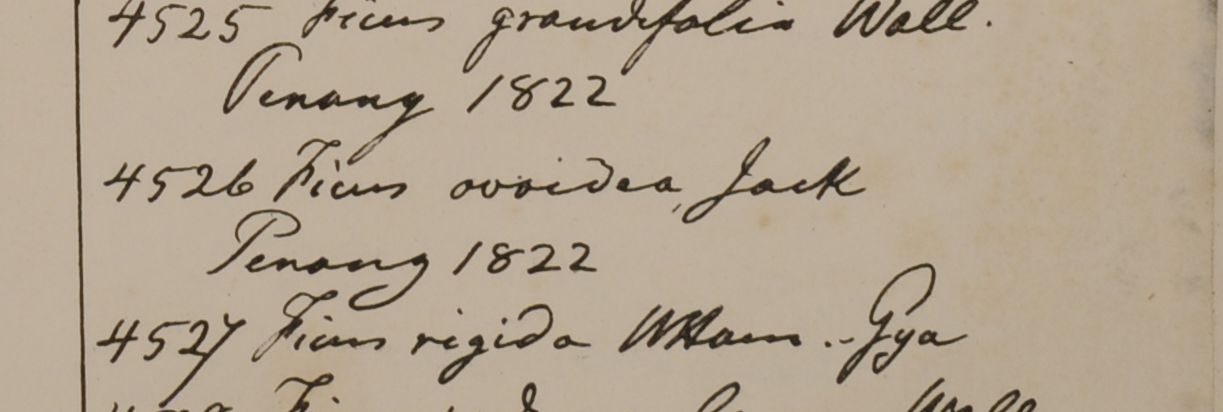 4525 Ficus grandifolia Wall.
Penang 1822
4526 Ficus ovoidea, Jack
Penang 1822
4527 Ficus rigida WHam.. Gya